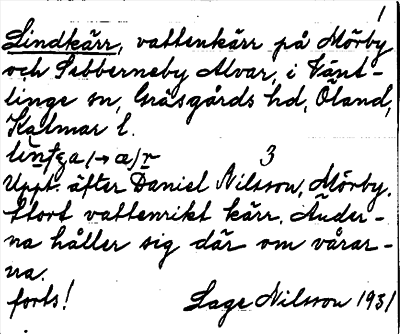 1
Lindkärr, vattenkärr på Mörby
och Sebberneby Alvar, i Vänt-
linge sn, Gräsgårds hd, Öland,
Kalmar l.
3
Uppt. äfter Daniel Nilsson, Mörby.
Stort vattenrikt kärr. Änder-
na håller sig där om vårar-
na.
forts! Lage Nilsson 1931